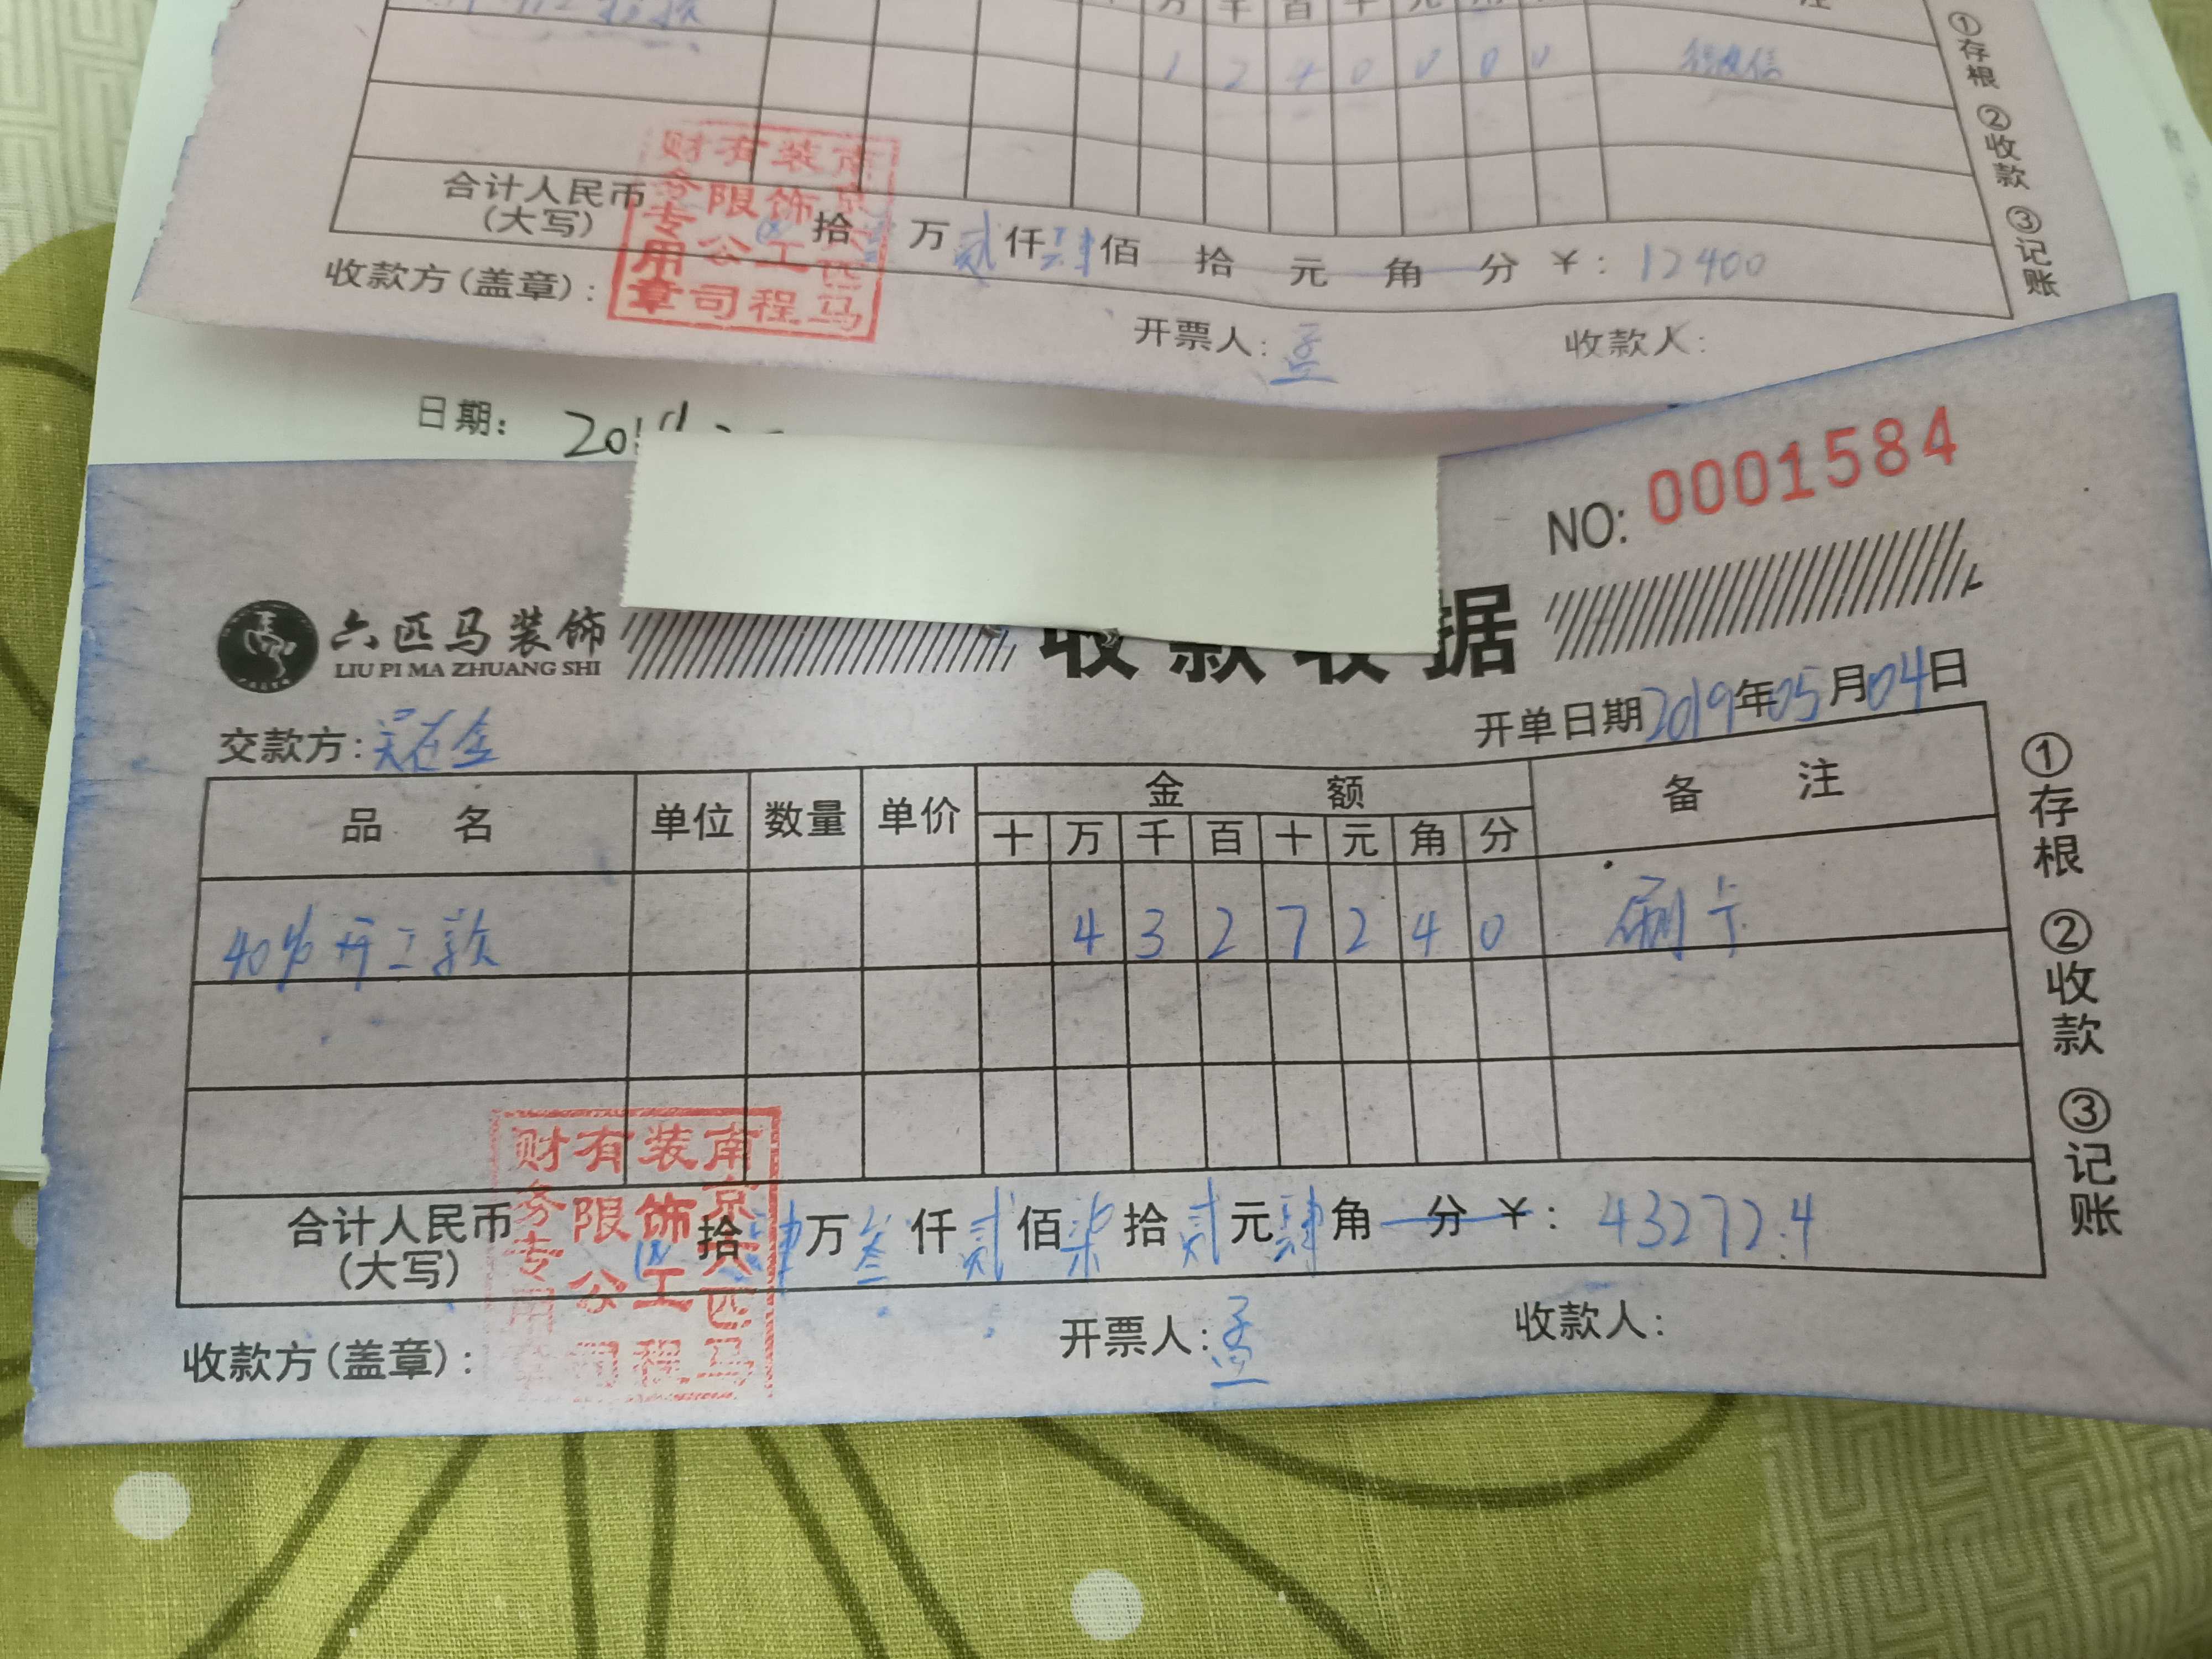 万 千 百 十 元 角
注
1 2 4 0 0 0 0
合计人民币
(大写)
拾 壹 万 贰 仟 肆 佰 拾 元 角 分 ¥: 12400
收款方(盖章):
开票人: 孟
收款人:
南京六匹马装饰工程有限公司财务专用章
①存根 ②收款 ③记账
日期:
NO: 0001584
六匹马装饰
LIU PI MA ZHUANG SHI
收款收据
交款方:
开单日期 2019年05月04日
品名 单位 数量 单价 金额 备注
十 万 千 百 十 元 角 分
40% 开工款 4 3 2 7 2 4 0 刷卡
合计人民币
(大写)
拾 肆 万 叁 仟 贰 佰 柒 拾 贰 元 肆 角 分 ¥: 43272.4
收款方(盖章):
开票人: 孟
收款人:
南京六匹马装饰工程有限公司财务专用章
①存根 ②收款 ③记账